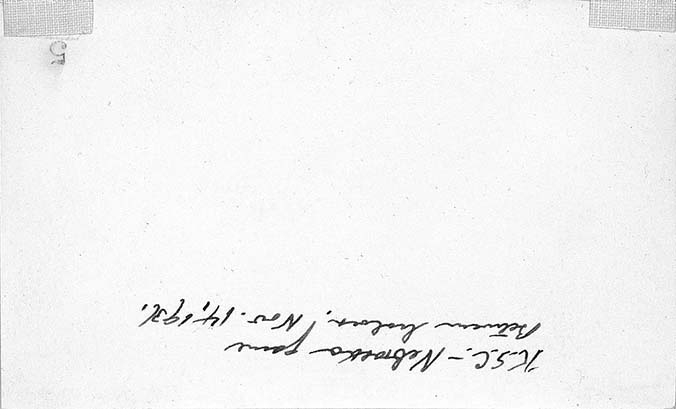 K.S.C. – Nebraska game
Between halves, Nov. 14, 1931.
5